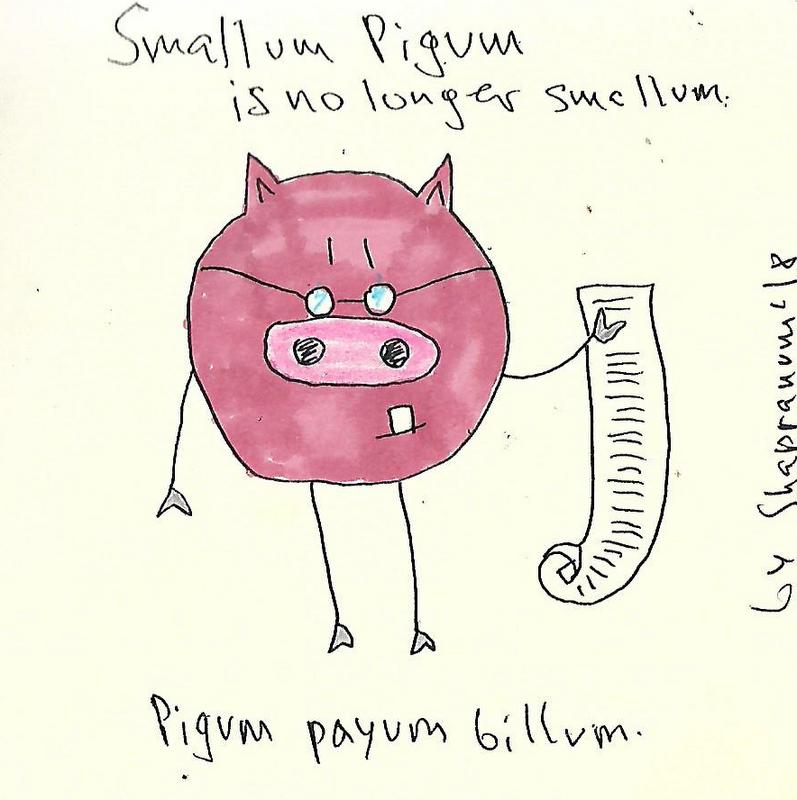 Smallum Pigum
is no longer smallum.
Pigum payum billum.
by Shapranum'18